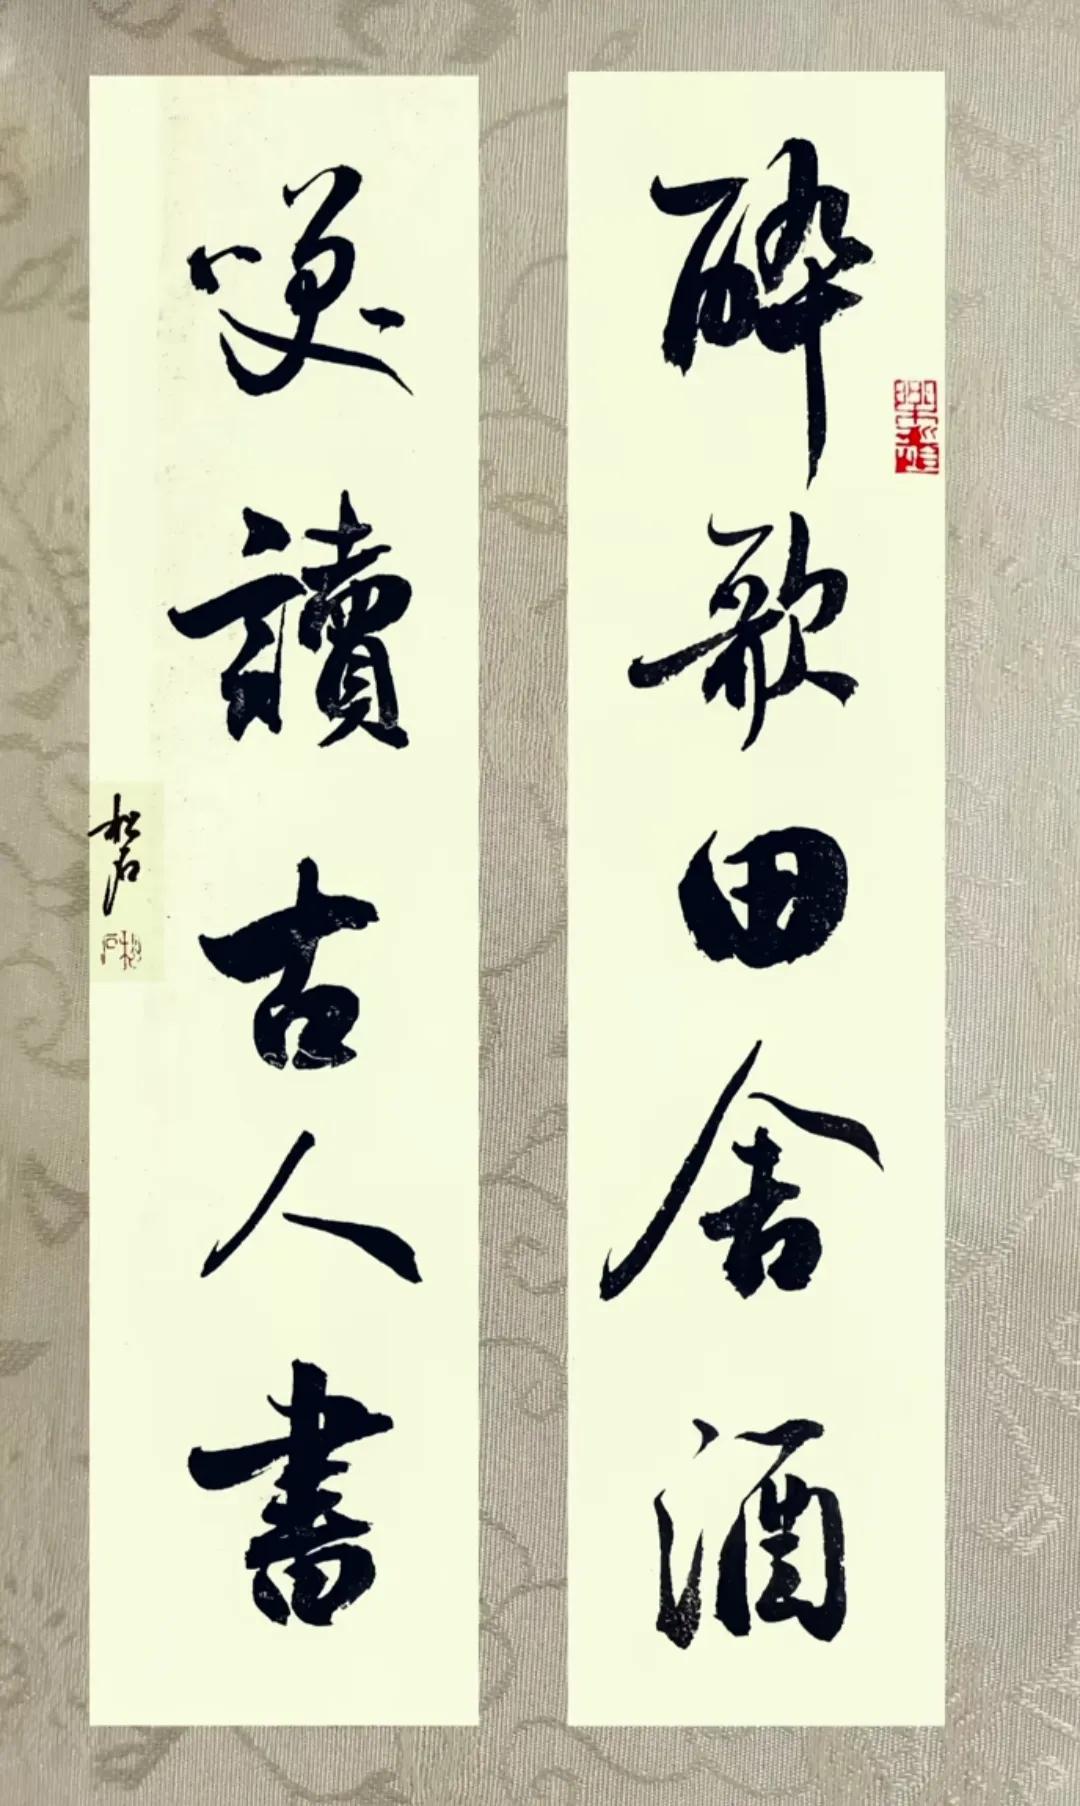 醉歌田舍酒
笑讀古人書
松石